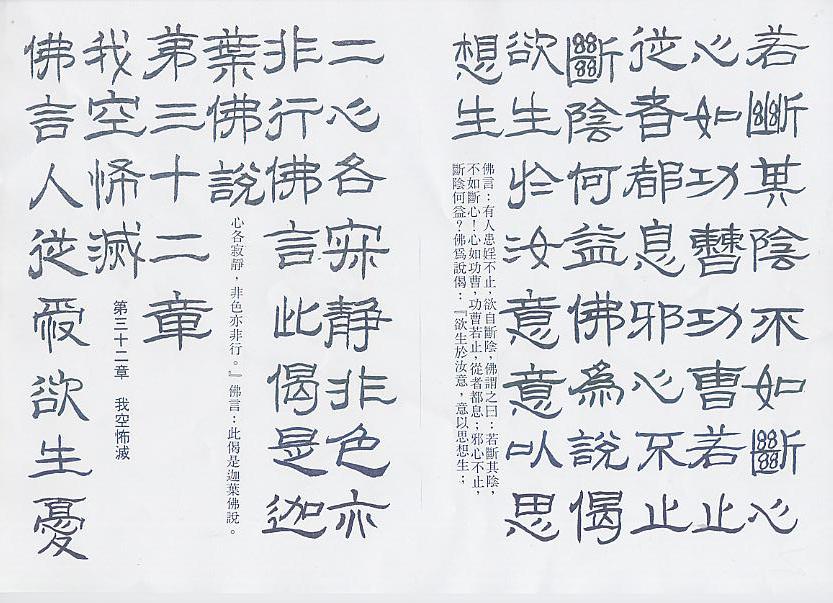 若斷其陰不如斷心
心如功曹功曹若止
從者都息邪心不止
斷陰何益佛為說偈
欲生於汝意意以思
想生
佛言：有人患婬不止，欲自斷陰，佛謂之曰：若斷其陰，
不如斷心！心如功曹，功曹若止，從者都息；邪心不止，
斷陰何益？佛爲說偈：『欲生於汝意，意以思想生；
二心各寂静非色亦
非行佛言此偈是迦
葉佛說
心各寂靜，非色亦非行。』佛言：此偈是迦葉佛說。
第三十二章
我空怖滅
第三十二章 我空怖滅
佛言人從愛欲生憂